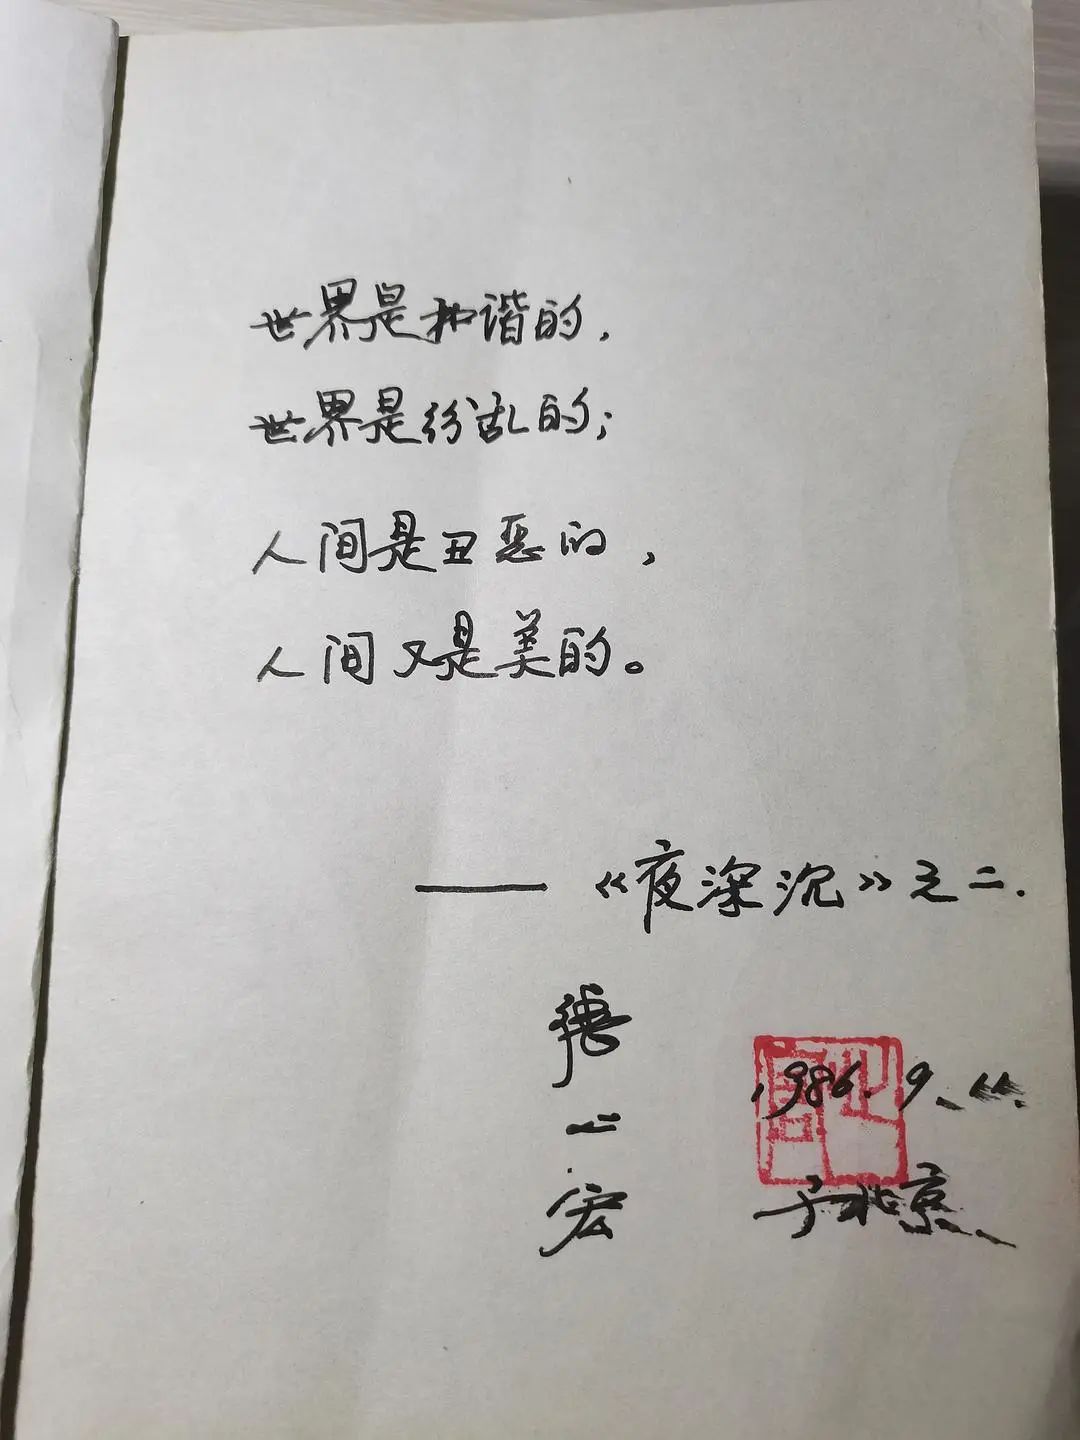 世界是和谐的，
世界是纷乱的；
人间是丑恶的，
人间又是美的。
——《夜深沉》之二.
宏
1986.9.
于北京